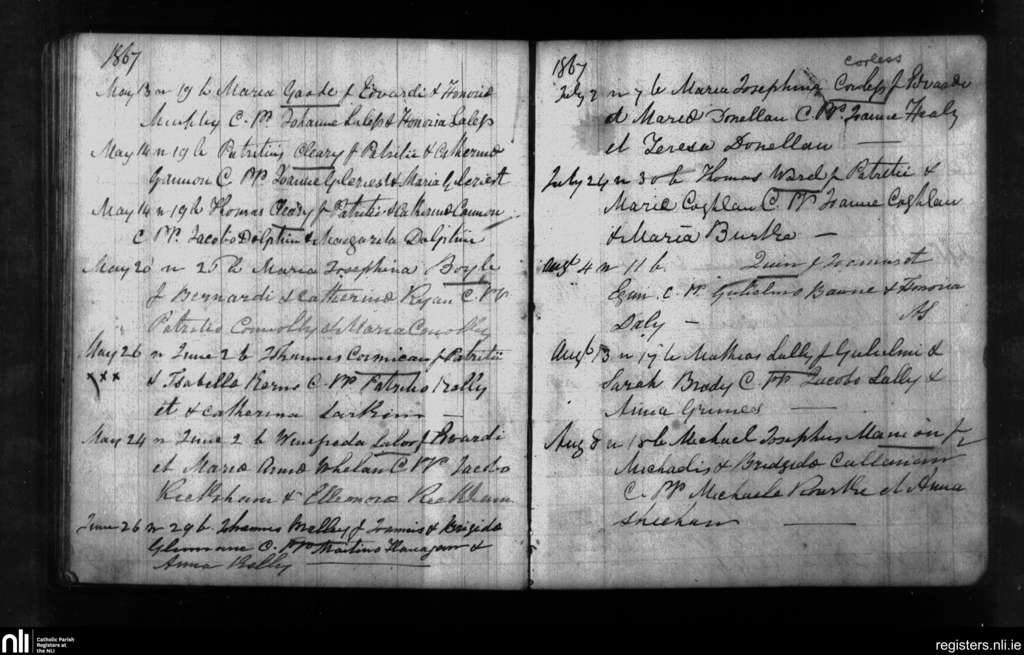 1867
May 13 n 19 b Maria Goode f Edvardi & Honoria
Murphy C. PP. Johanne Laless & Honoria Laless
May 14 n 19 b Patritius Cleary f Patritii & Catherina
Gannon C PP. Joanne Gilcriest & Maria Gilcriest
May 14 n 19 b Thomas Cleary f Patritii & Catherina Cannon
C PP. Jacobo Dolphin & Margarita Dolphin
May 20 n 25 b Maria Josephina Boyle
f Bernardi & Catherina Ryan C. PP
Patritio Connolly & Maria Conolly
May 26 n June 2 b Johannes Cormican f Patritii
xxx & Isabella Kerns C. PP. Patritio Kelly
et & Catherina Larkin —
May 24 n June 2 b Winifreda Lalor f Edvardi
et Maria Anna Whelan C. PP. Jacobo
Rickham & Elleonora Rickham
June 26 n 29 b Johannes Melley f & Brigida
C. PP Martino Flanagan &
Anna Kelly
1867
corless
July 2 n 7 b Maria Josephina Corless f Edvardi
et Maria Donellan C. PPs. Joanne Healy
et Teresa Donellan —
July 24 n 30 b Thomas Ward f Patritii &
Maria Coghlan C. PP Joanne Coghlan
& Maria Burke —
Augt 4 n 11 b Quin f et
Egan C. P. Gulielmo & Honoria
Daly —
Augt 13 n 17 b Mathias Lally f Gulielmi &
Sarah Brody C. PP Jacobo Lally &
Anna Grimes —
Aug 8 n 18 b Michael Josephus Manion f
Michaelis & Bridgida Callanan
C. PP. Michaele Rourke et Anna
Sheehan —
nli
Catholic Parish
Registers at
the NLI
registers.nli.ie